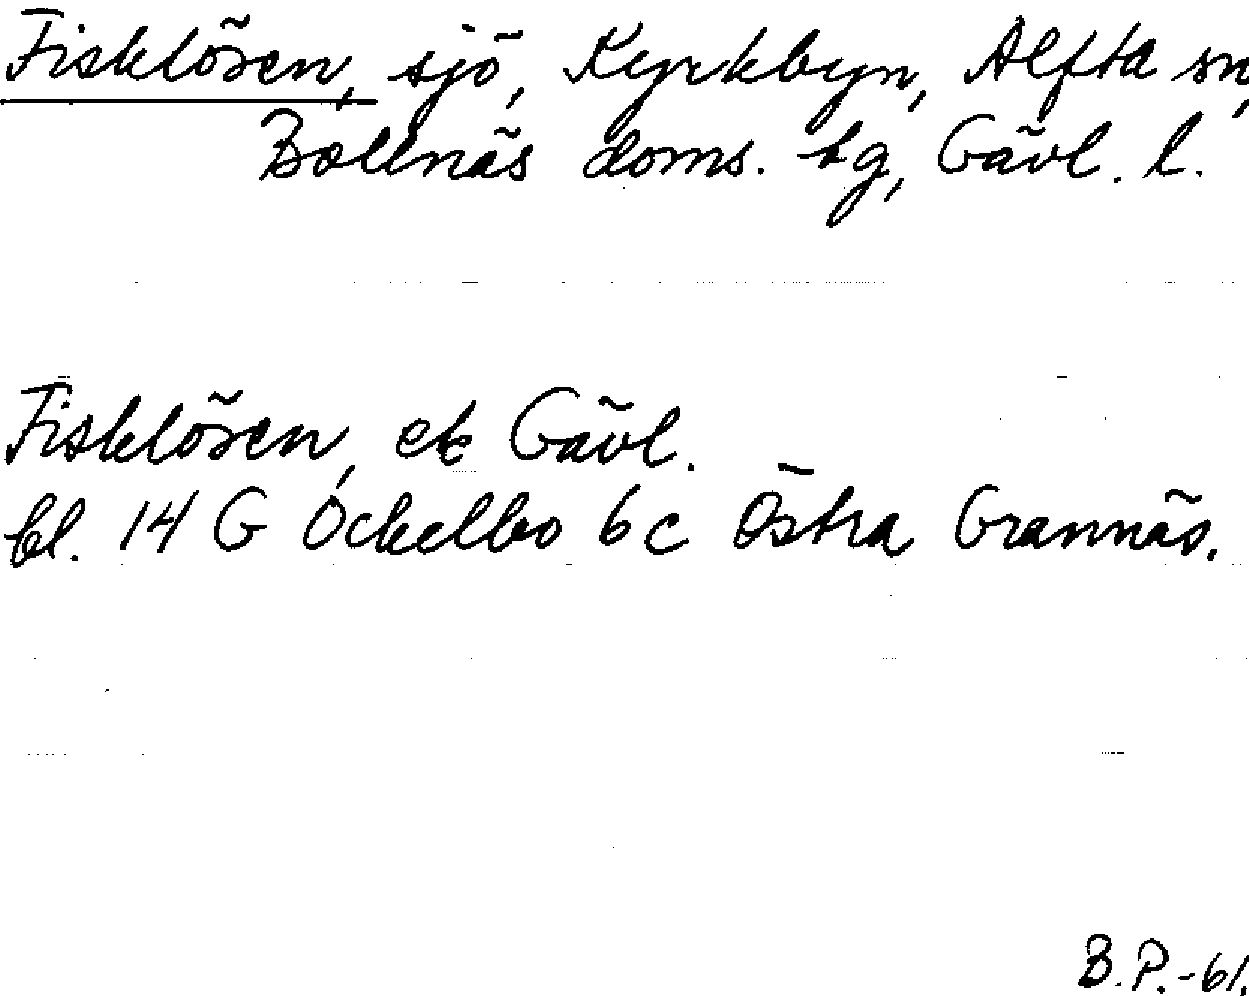 Fisklösen, sjö, Kyrkbyn, Alfta sn,
Bollnäs doms. tg, Gävl. l.
Fisklösen, ek Gävl.
bl. 14 G Ockelbo 6 c Östra Grannäs.
B.P.-61.